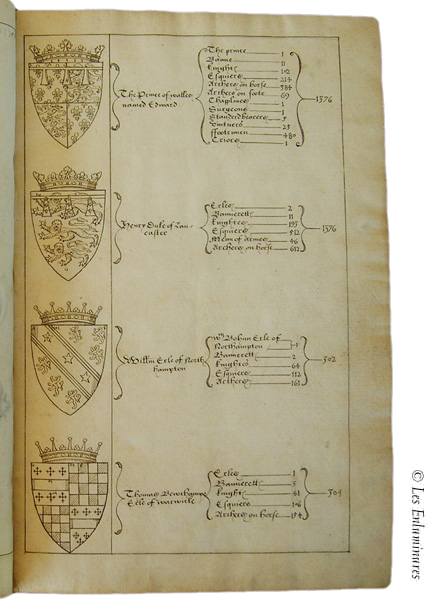 The Prince of walles
named Edward
The prince 1
Baner 11
Knight 102
Esquiers 214
Archers on horse 384
Archers on foote 69
Chaplines 1
Surgeons 1
Standerdbearers 5
25
ffootemen 480
Criors 1
1376
Henry Duke of Lan-
caster
Erles 2
Bannerett 11
Knightes 195
Esquiers 512
Menn of Armes 46
Archers on horse 612
1376
Willm Erle of North
hampton
Wm Bohun Erle of
Northampton 1
Bannerett 2
Knightes 64
Esquiers 112
Archers 161
302
Thomas Bewchampe
Erle of warwike
Erles 1
Bannerett 5
Knight 61
Esquiers 106
Archers on horse 154
304
© Les Enluminures